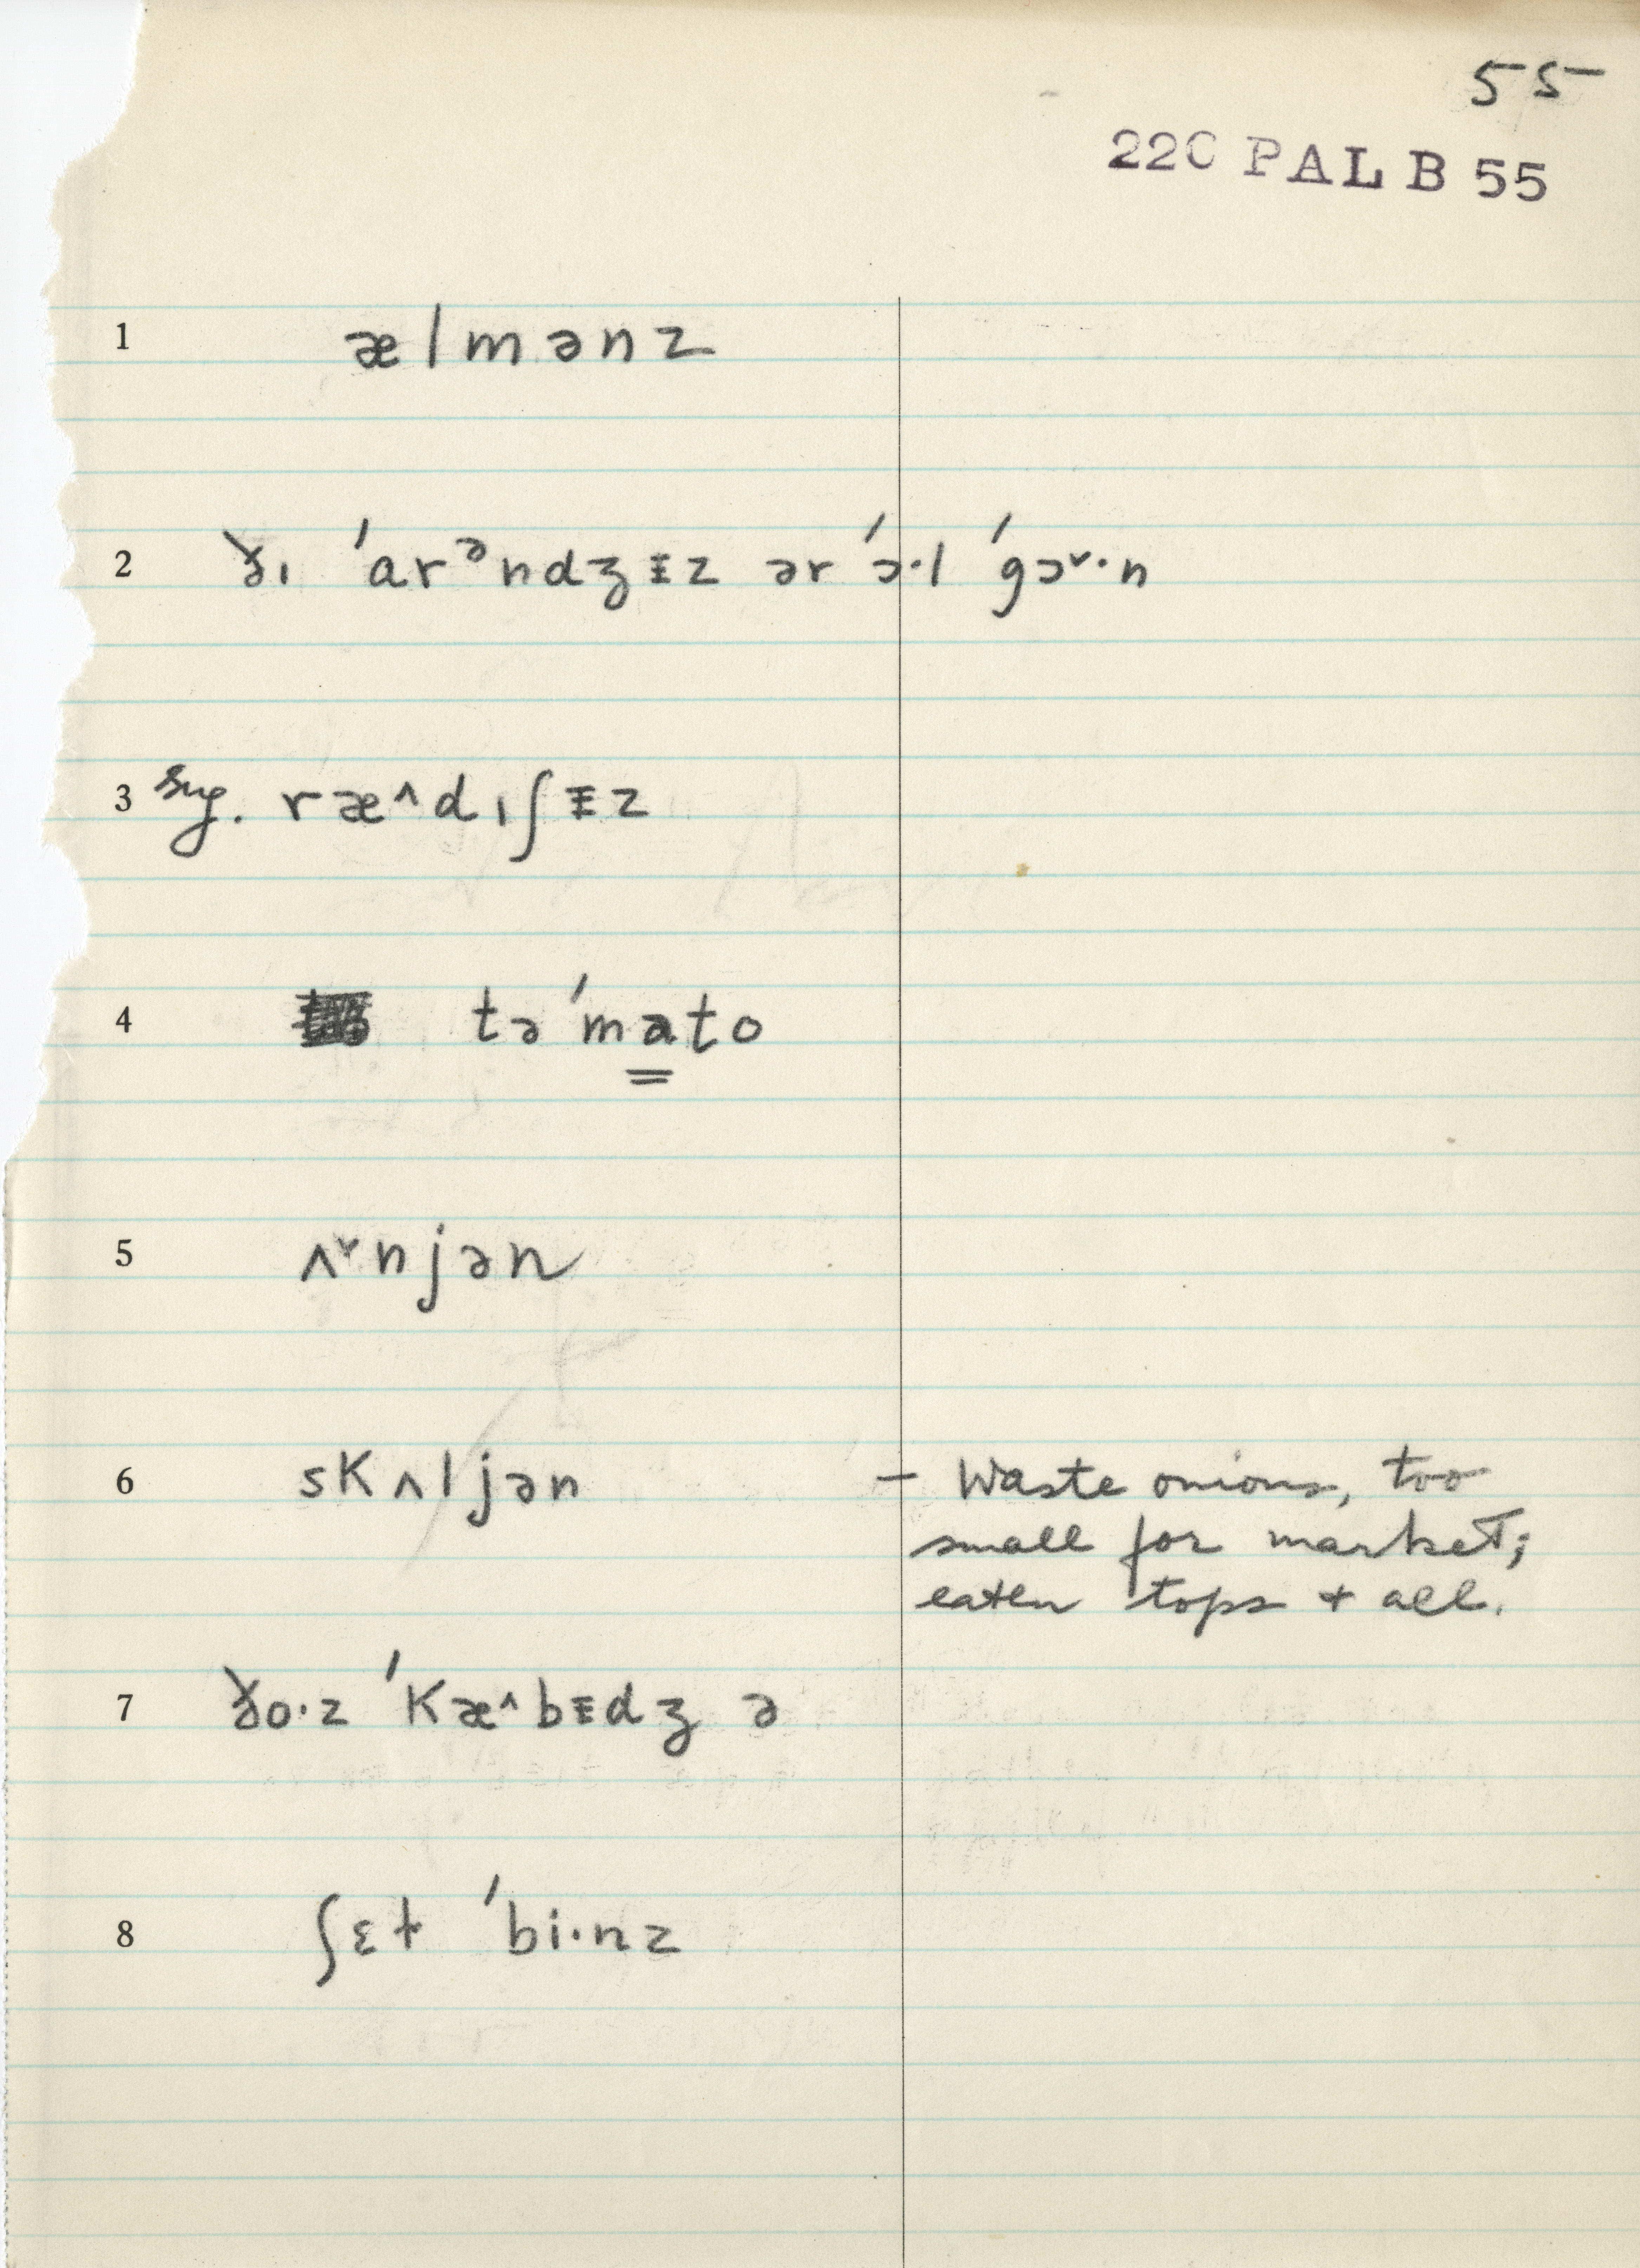 55
22C PAL B 55
1 ælmənz
2 ðɪ ˈarᵊndʒɨz ər ˈɔ·l ˈgɔ˅·n
3 sug. ræ^dɪʃɨz
4 təˈmato
5 ʌ˅njən
6 skʌljən – Waste onions, too
small for market;
eaten tops + all.
7 ðo·z ˈkæ^bɨdʒ ə
8 ʃɛt ˈbi·nz